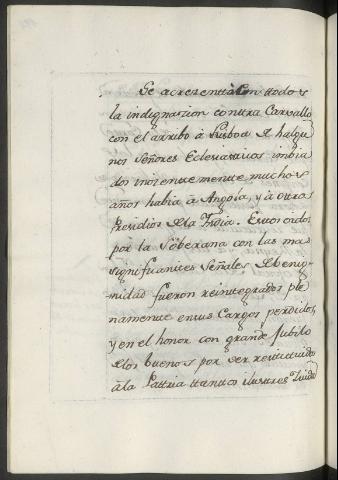 Se acrezentò con ttodos
la indignazion conttra Carvallo
con el arribo à Lisboa de halgu
nos Señores Ecleciasticos imbia
dos inosentemente muchos
años habia à Angola, y à otros
Presidios de la India. Estos todos
por la Soberana con las mas
significanttes Señales de benig
nidad fueron reintegrados ple
namente en sus Cargos perdidos,
y en el honor con grande Jubilo
de los buenos por ser restituidos
à la Pattria ttanttos ilustres